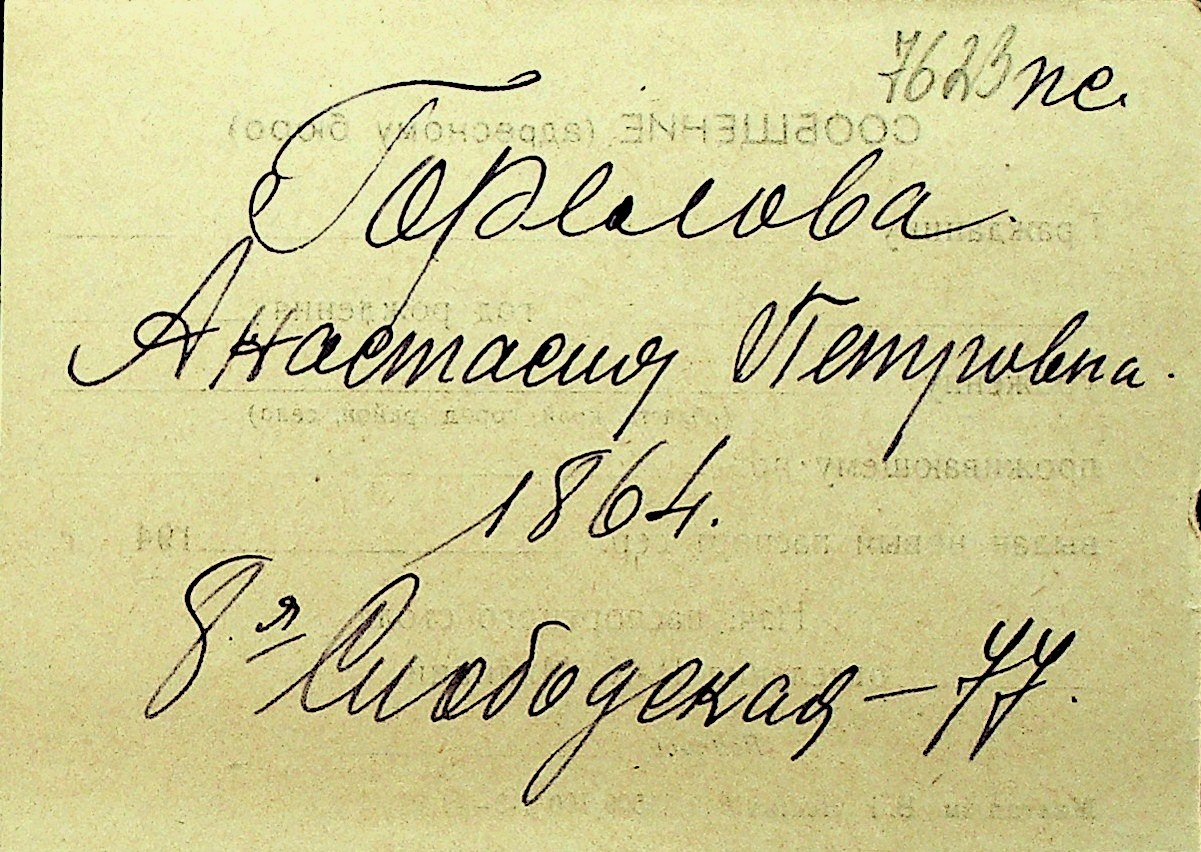 7623 пс.
Горелова
Анастасия Петровна.
1864.
8.я Слободская – 77.
СООБЩЕНИЕ (адресному бюро)
Гражданину
год рождения
(область, край, город, район, село)
проживающему по
выдан новый паспорт сер. 194 г.
Нач. паспортного